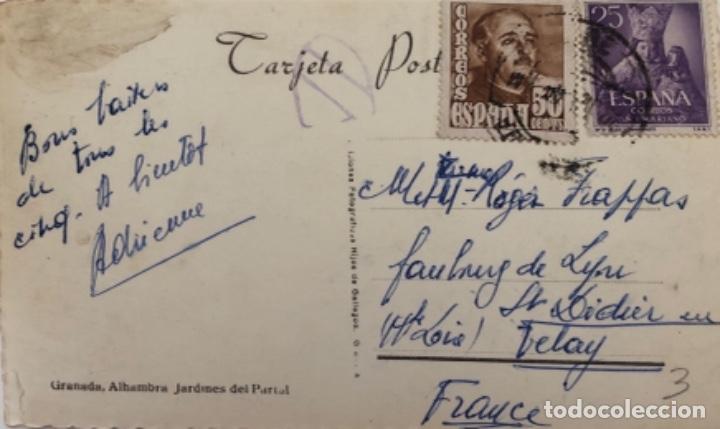 Tarjeta Post
CORREOS
ESPAÑA
50
CENTS
25
ESPAÑA
CORREOS
AÑO MARIANO
Bons baisers
de tous les
cinq. A bientôt
Adrienne
M. et M. Roger Frappas
faubourg de Lyon
St Didier en
(Hte Loire) Velay
France
3
Granada, Alhambra Jardines del Partal
todocoleccion.net